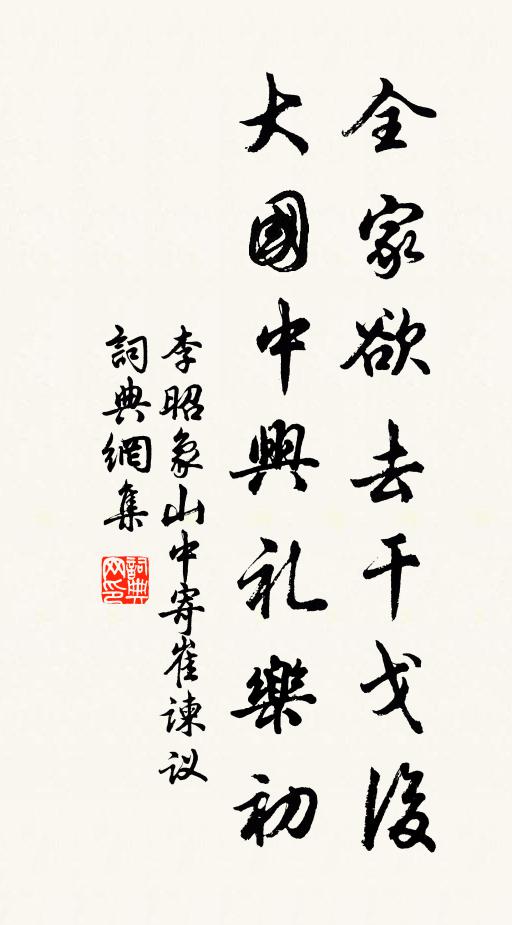 全家欲去干戈後
大國中興礼樂初
李昭象山中寄崔諫议
詞典網集
詞典网印